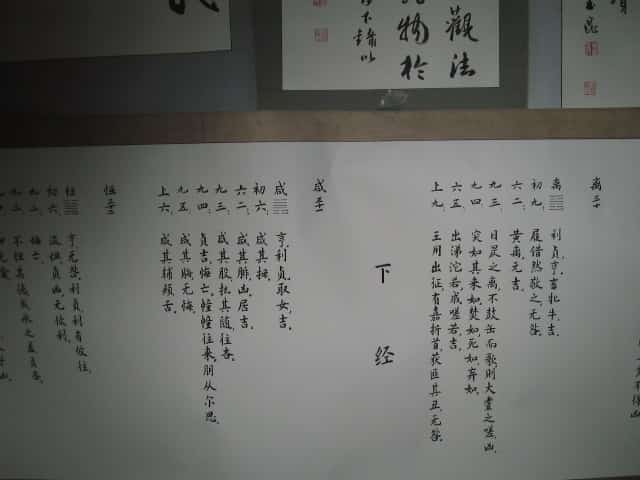 觀法
物於
离三十
离䷝ 利贞，亨，畜牝牛吉。
初九，履错然，敬之无咎。
六二，黄离元吉。
九三，日昃之离，不鼓缶而歌，则大耋之嗟，凶。
九四，突如其来如，焚如，死如，弃如。
六五，出涕沱若，戚嗟若，吉。
上九，王用出征，有嘉折首，获匪其丑，无咎。
下经
咸三十一
咸䷞ 亨，利贞，取女，吉。
初六，咸其拇。
六二，咸其腓，凶，居吉。
九三，咸其股，执其随，往吝。
九四，贞吉，悔亡，憧憧往来，朋从尔思。
九五，咸其脢，无悔。
上六，咸其辅颊舌。
恒三十二
恒䷟ 亨，无咎，利贞，利有攸往。
初六，浚恒，贞凶，无攸利。
九二，悔亡。
九三，不恒其德，或承之羞，贞吝。